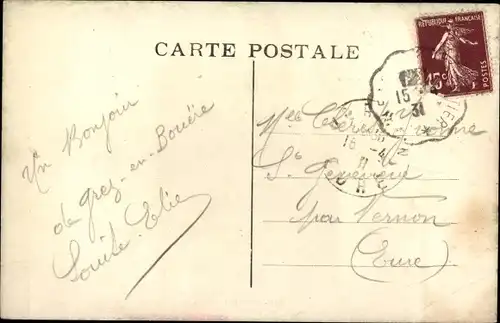 RÉPUBLIQUE FRANÇAISE
15c
POSTES
CARTE POSTALE
15
31
16-4
31
Un Bonjour
de Grez-en-Bouère
Louise Elie
Mlle Yvonne
Ste Geneviève
par Vernon
(Eure)